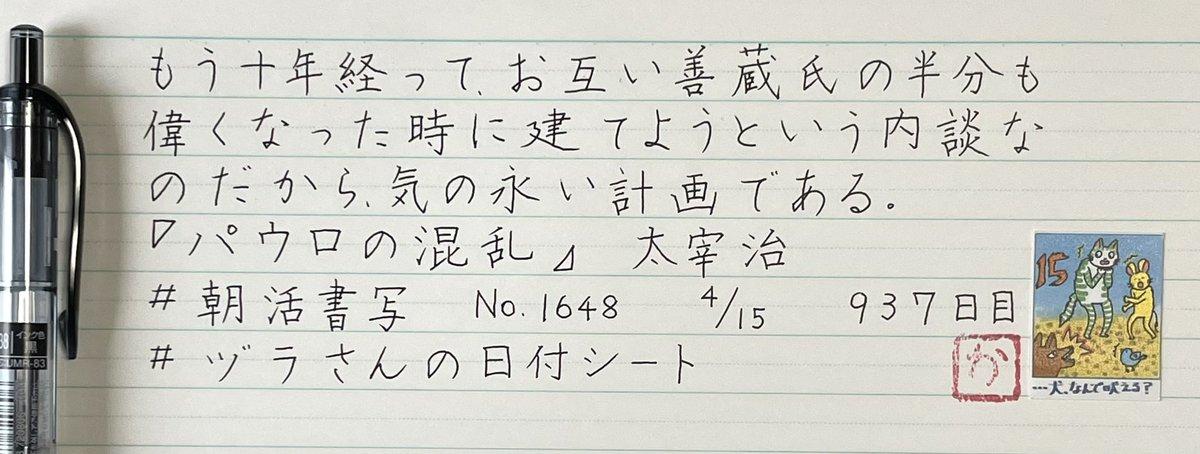 もう十年経って、お互い善蔵氏の半分も
偉くなった時に建てようという内談な
のだから、気の永い計画である。
『パウロの混乱』 太宰治
#朝活書写 No.1648 4/15 937日目
#ヅラさんの日付シート
か
15
…犬、なんで吠える?
インク色
黒
UMR-83